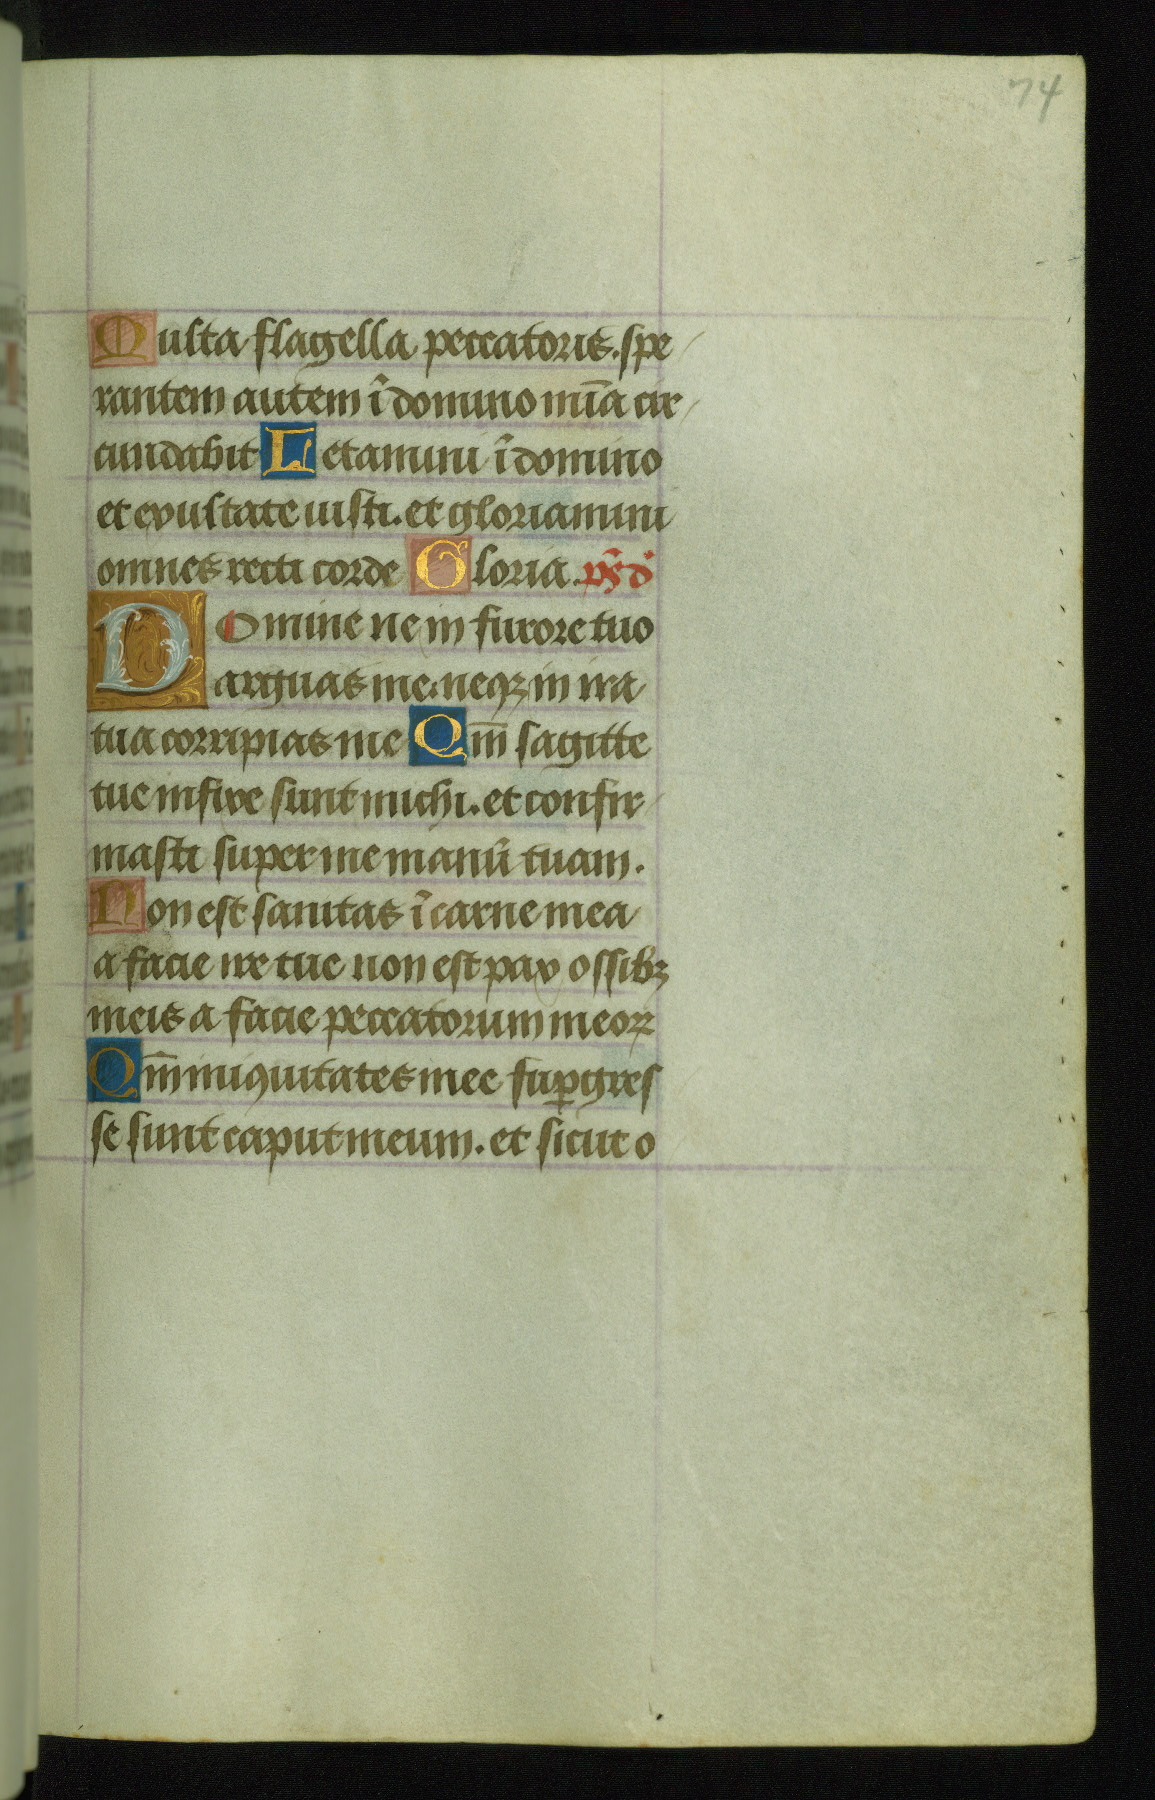 74
Multa flagella peccatoris. spe
rantem autem ī domino mīa cir
cundabit Letamini ī domino
et exultate iusti. et gloriamini
omnes recti corde Gloria. ps̄ d
Domine ne in furore tuo
arguas me. neqꝫ in ira
tua corripias me Qm̄ sagitte
tue infixe sunt michi. et confir
masti super me manū tuam.
Non est sanitas ī carne mea
a facie ire tue non est pax ossibꝫ
meis a facie peccatorum meoꝝ
Qm̄ iniquitates mee suꝑgres
se sunt caput meum. et sicut o